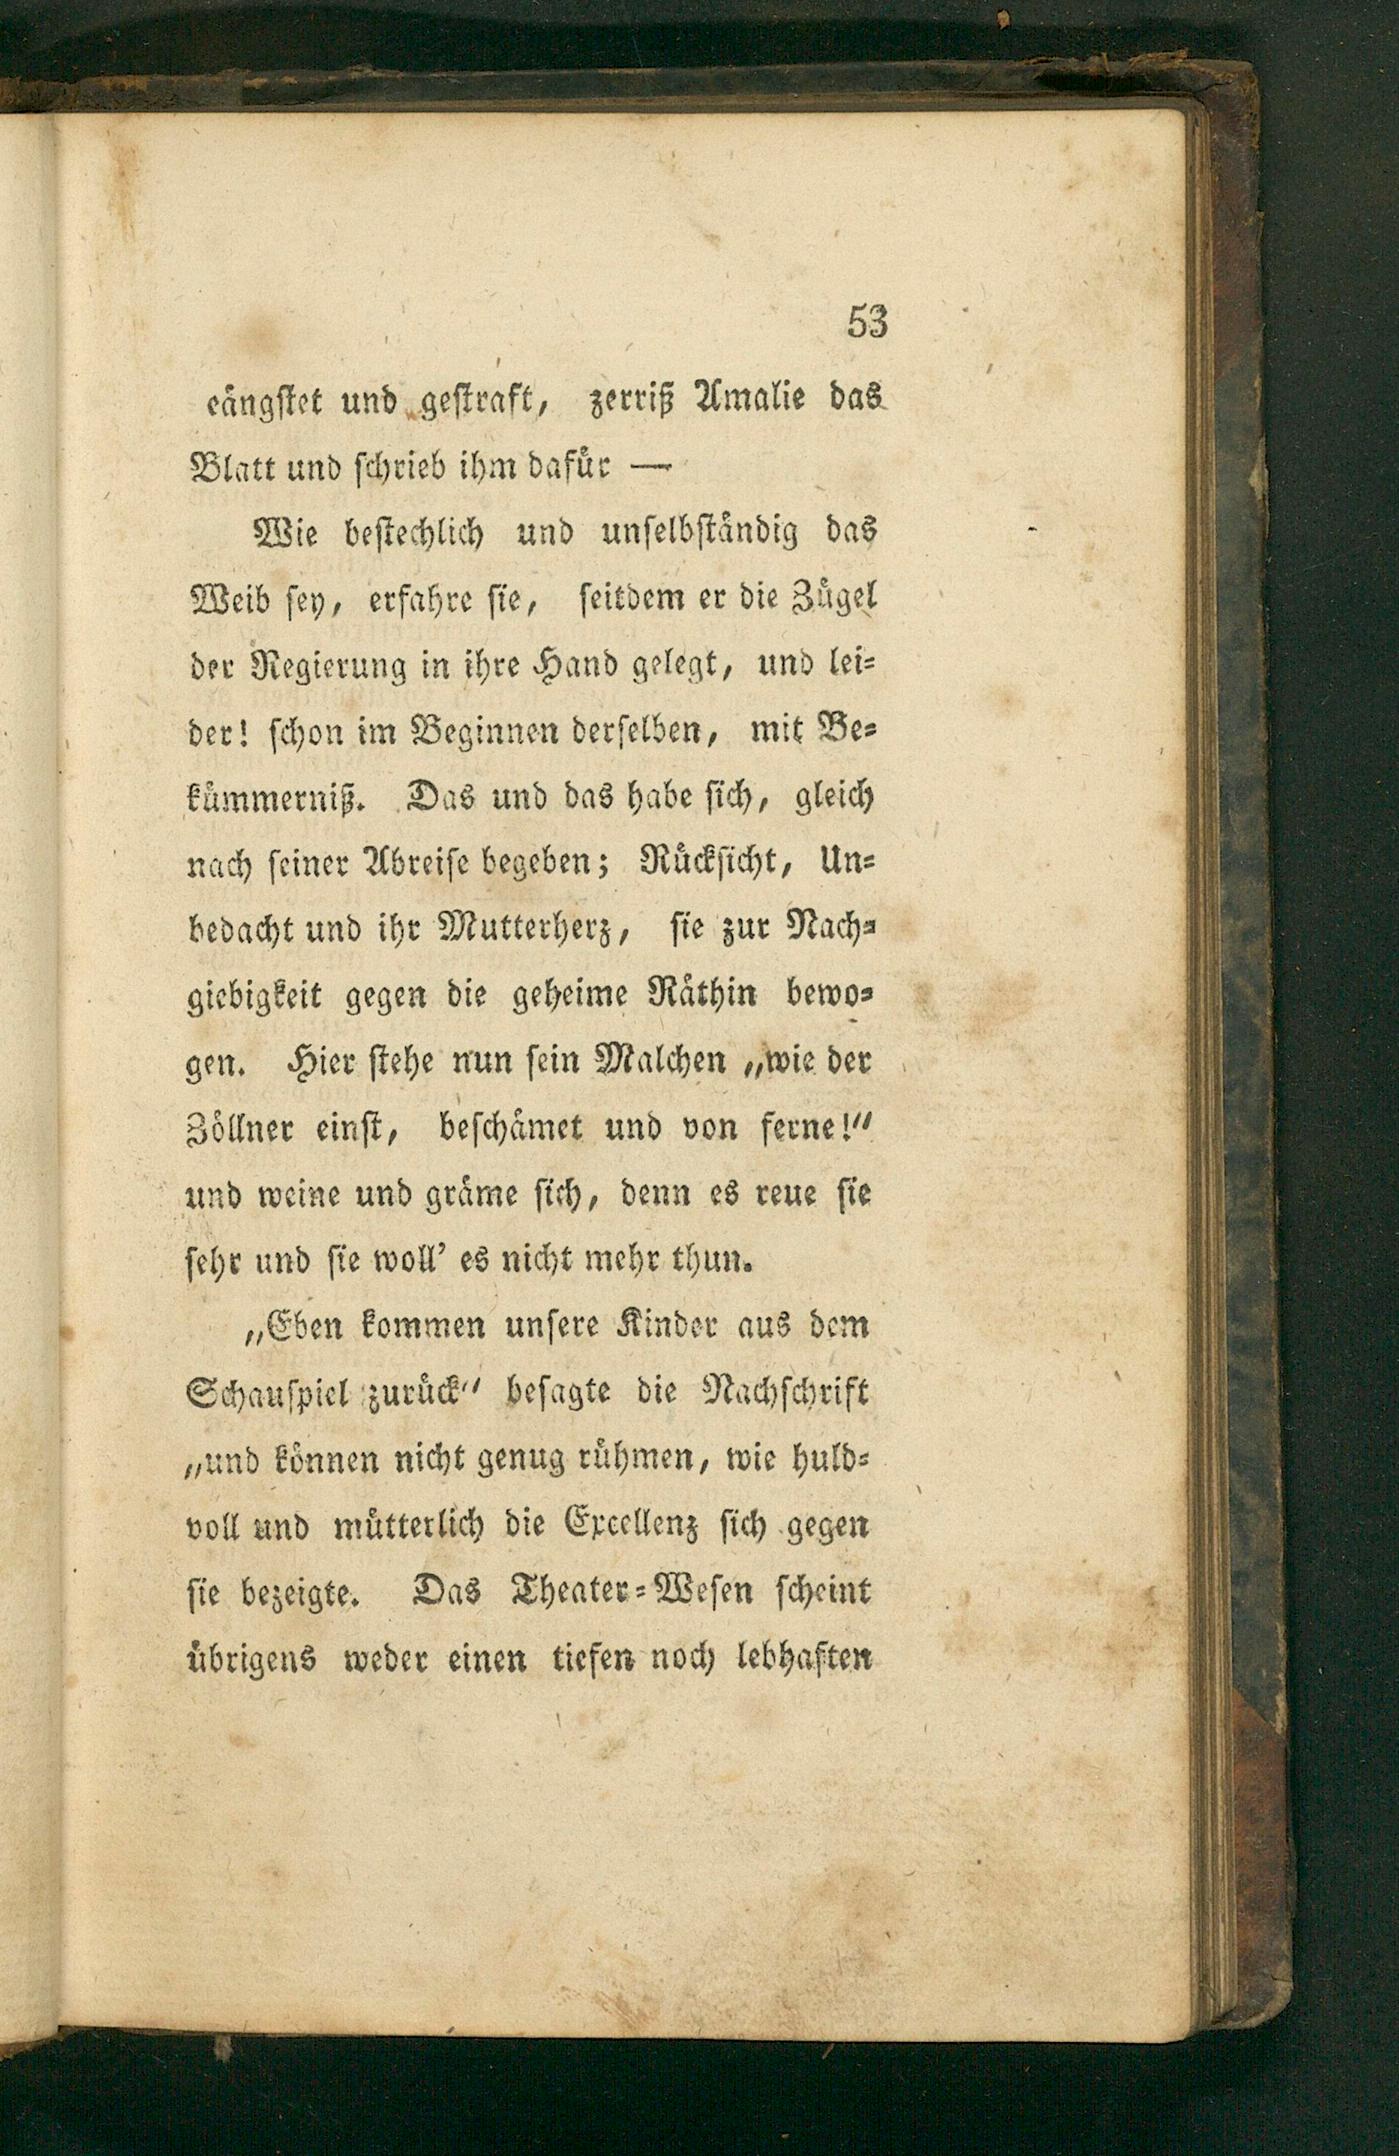 53
eängstet und gestraft, zerriß Amalie das
Blatt und schrieb ihm dafür —
Wie bestechlich und unselbständig das
Weib sey, erfahre sie, seitdem er die Zügel
der Regierung in ihre Hand gelegt, und lei-
der! schon im Beginnen derselben, mit Be-
kümmerniß. Das und das habe sich, gleich
nach seiner Abreise begeben; Rücksicht, Un-
bedacht und ihr Mutterherz, sie zur Nach-
giebigkeit gegen die geheime Räthin bewo-
gen. Hier stehe nun sein Malchen „wie der
Zöllner einst, beschämet und von ferne!“
und weine und gräme sich, denn es reue sie
sehr und sie woll’ es nicht mehr thun.
„Eben kommen unsere Kinder aus dem
Schauspiel zurück“ besagte die Nachschrift
„und können nicht genug rühmen, wie huld-
voll und mütterlich die Excellenz sich gegen
sie bezeigte. Das Theater-Wesen scheint
übrigens weder einen tiefen noch lebhaften